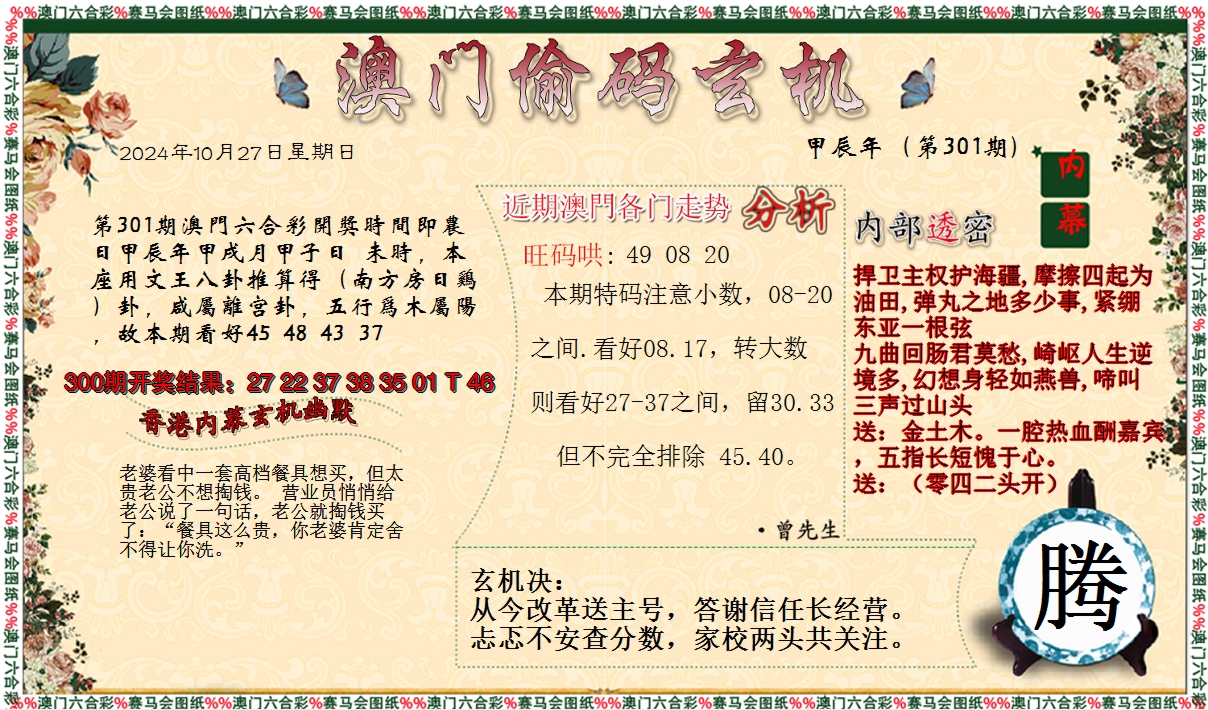 %%澳门六合彩%赛马会图纸%%澳门六合彩%赛马会图纸%%澳门六合彩%赛马会图纸%%澳门六合彩%赛马会图纸%%澳门六合彩%赛马会图纸%%澳门六合彩%赛马会图纸%%
澳门偷码玄机
2024年10月27日星期日
甲辰年（第301期）
内幕
第301期澳門六合彩開獎時間即農
日甲辰年甲戌月甲子日 未時，本
座用文王八卦推算得（南方房日鷄
）卦，咸屬離宫卦，五行爲木屬陽
，故本期看好45 48 43 37
300期开奖结果：27 22 37 38 35 01 T 46
香港内幕玄机幽默
老婆看中一套高档餐具想买，但太
贵老公不想掏钱。 营业员悄悄给
老公说了一句话，老公就掏钱买
了：“餐具这么贵，你老婆肯定舍
不得让你洗。”
近期澳門各门走势 分析
旺码哄: 49 08 20
本期特码注意小数，08-20
之间.看好08.17，转大数
则看好27-37之间，留30.33
但不完全排除 45.40。
·曾先生
内部透密
捍卫主权护海疆,摩擦四起为
油田,弹丸之地多少事,紧绷
东亚一根弦
九曲回肠君莫愁,崎岖人生逆
境多,幻想身轻如燕兽,啼叫
三声过山头
送：金土木。一腔热血酬嘉宾
，五指长短愧于心。
送：（零四二头开）
玄机决：
从今改革送主号，答谢信任长经营。
忐忑不安查分数，家校两头共关注。
腾
%%澳门六合彩%赛马会图纸%%澳门六合彩%赛马会图纸%%澳门六合彩%赛马会图纸%%澳门六合彩%赛马会图纸%%澳门六合彩%赛马会图纸%%澳门六合彩%赛马会图纸%%